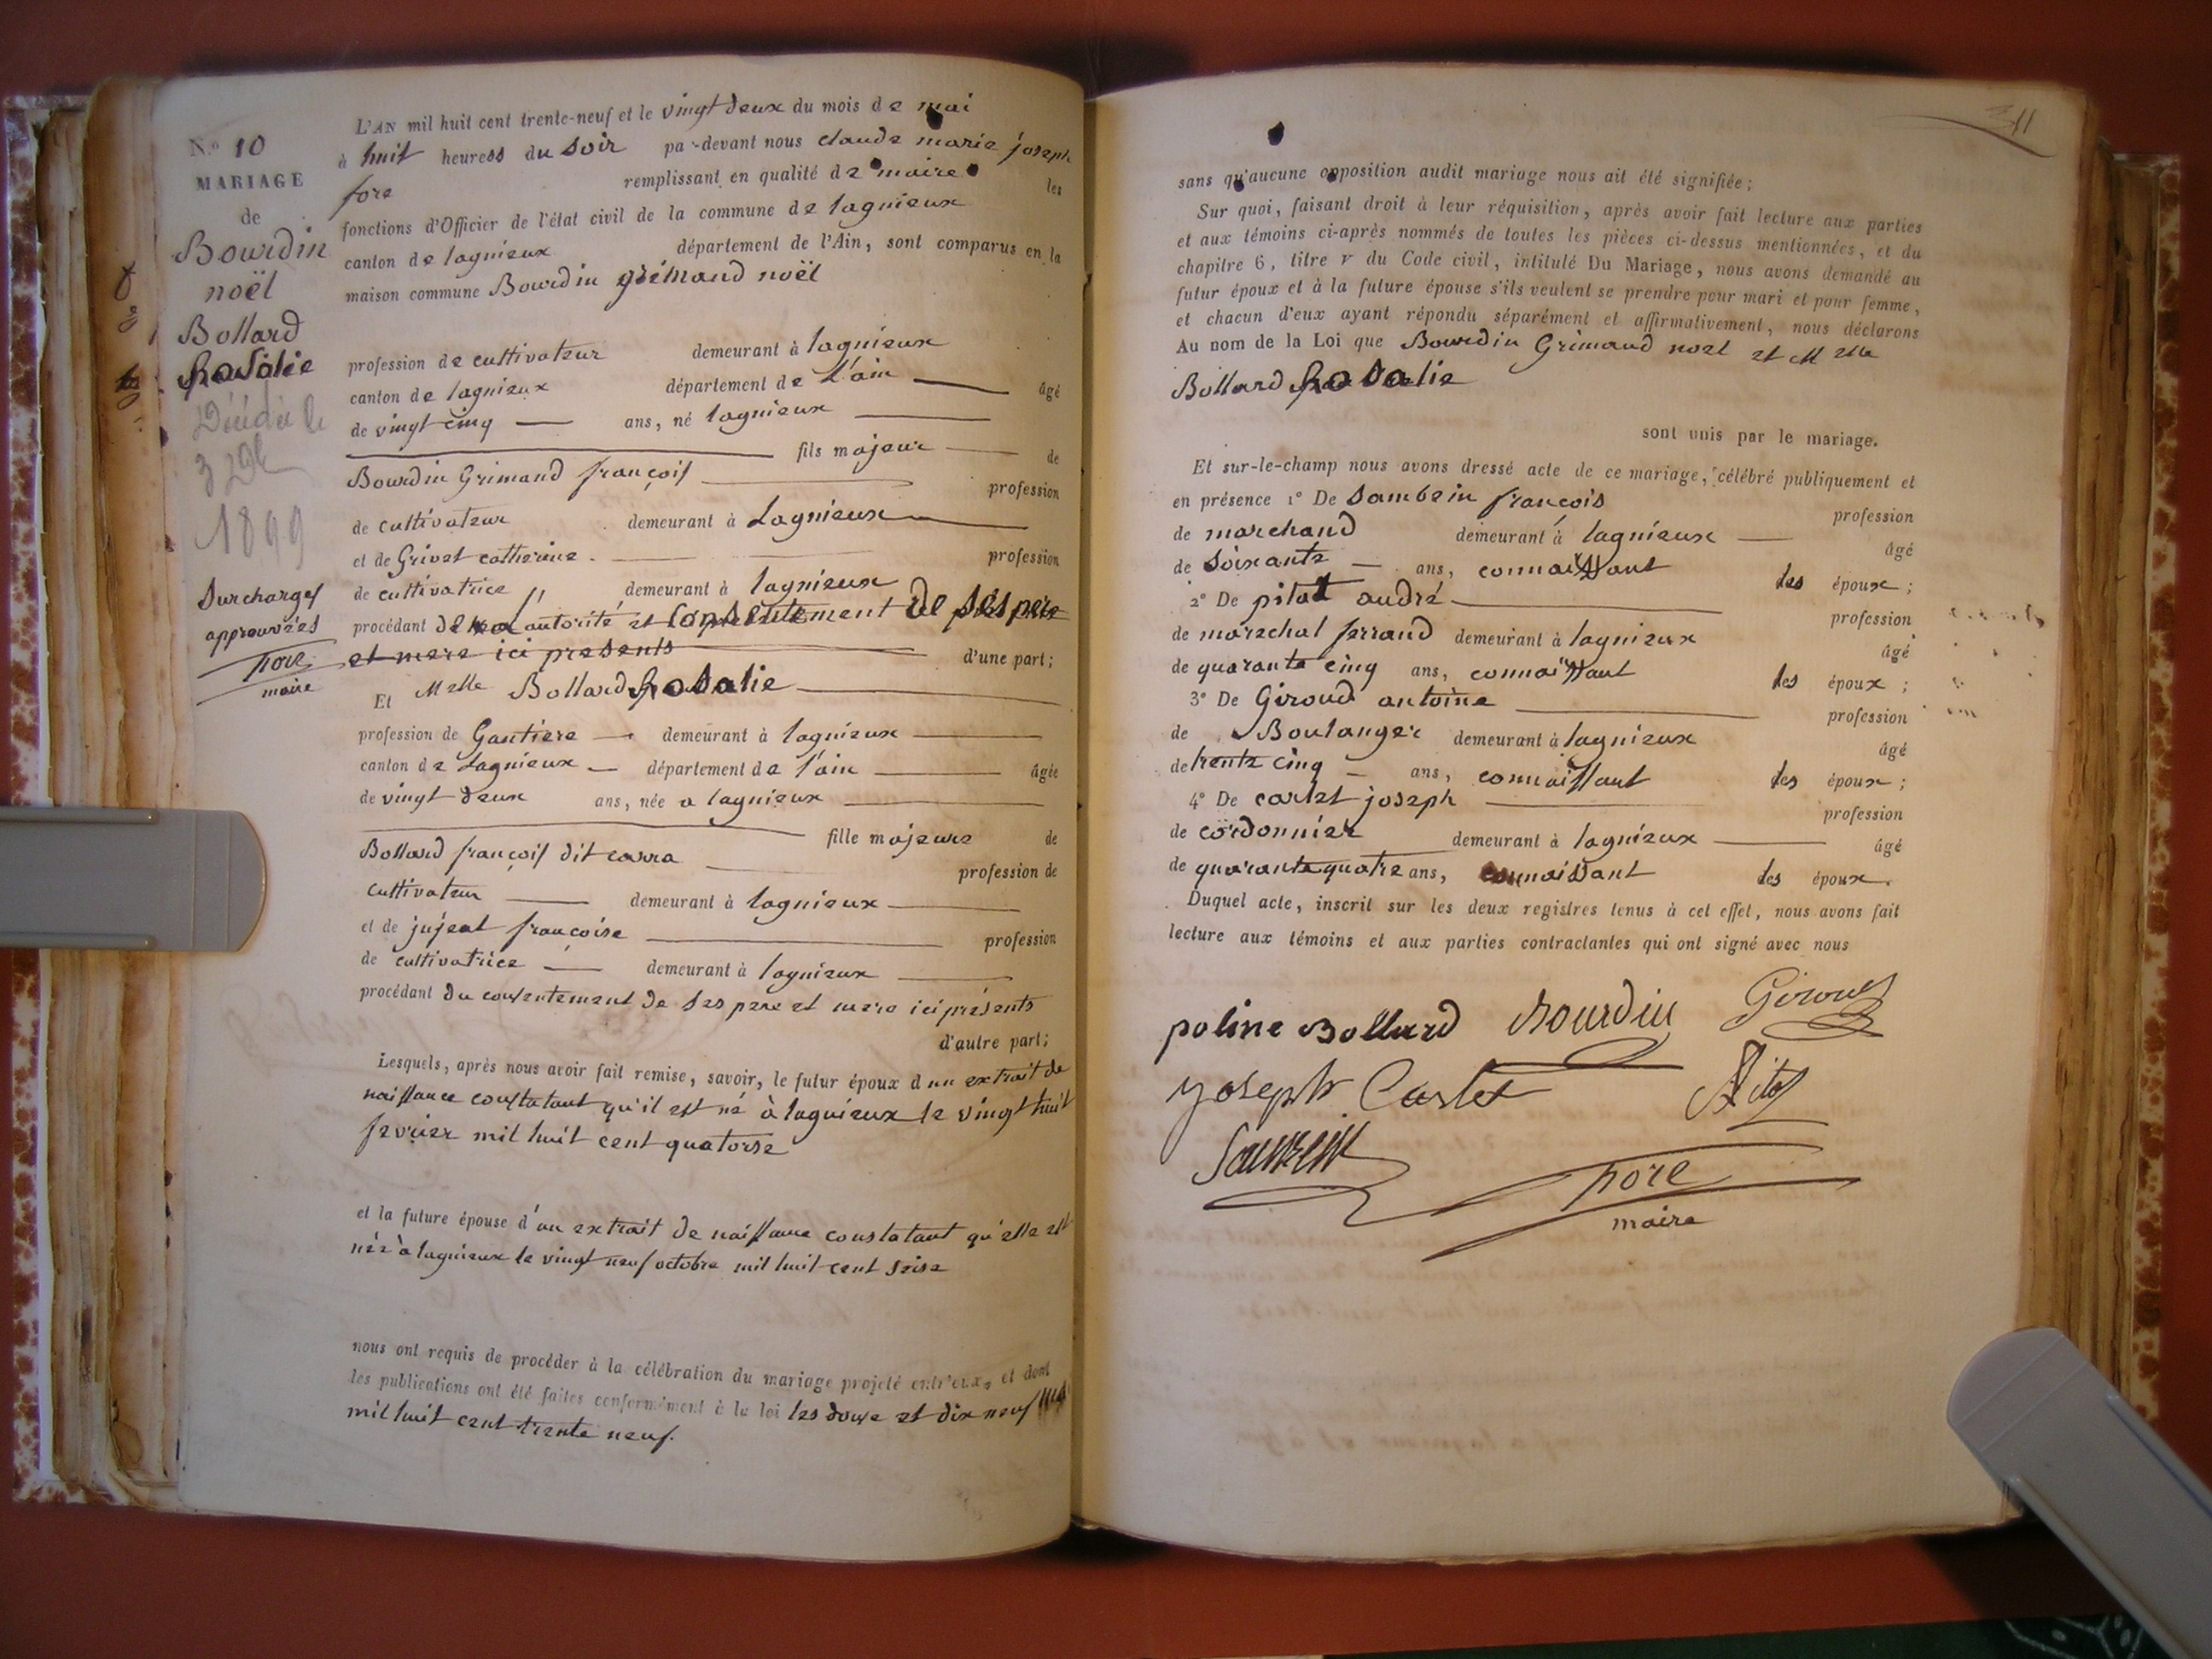 N.º 10
MARIAGE
de
Bourdin
noël
Bollard
Rosalie
Décédée le
3
1899
Surcharges
approuvées
fore
maire
L'AN mil huit cent trente-neuf et le vingt deux du mois de mai
à huit heures du soir pa-devant nous claude marie joseph
fore remplissant en qualité de maire les
fonctions d'Officier de l'état civil de la commune de lagnieux
canton de lagnieux département de l'Ain, sont comparus en la
maison commune Bourdin grimand noël
profession de cultivateur demeurant à lagnieux
canton de lagnieux département de L'ain âgé
de vingt cinq ans, né lagnieux
fils majeur de
Bourdin Grimand françois profession
de cultivateur demeurant à Lagnieux
et de Grivet catherine profession
de cultivatrice demeurant à lagnieux
procédant de sa autorité et consentement de ses pere
et mere ici presents d'une part;
Et Melle Bollard Rosalie
profession de Gantiere demeurant à lagnieux
canton de Lagnieux département de l'ain âgée
de vingt deux ans, née a lagnieux
fille majeure de
Bollard françois dit carra profession de
cultivateur demeurant à lagnieux
et de jujeat françoise profession
de cultivatrice demeurant à lagnieux
procédant du consentement de ses pere et mere ici présents
d'autre part;
Lesquels, après nous avoir fait remise, savoir, le futur époux d'un extrait de
naissance constatant qu'il est né à lagnieux le vingt huit
fevrier mil huit cent quatorse
et la future épouse d'un extrait de naissance constatant qu'elle est
née à lagnieux le vingt neuf octobre mil huit cent seise
nous ont requis de procéder à la célébration du mariage projeté entr'eux, et dont
les publications ont été faites conformément à la loi les douze et dix neuf mai
mil huit cent trente neuf.
11
sans qu'aucune opposition audit mariage nous ait été signifiée;
Sur quoi, faisant droit à leur réquisition, après avoir fait lecture aux parties
et aux témoins ci-après nommés de toutes les pièces ci-dessus mentionnées, et du
chapitre 6, titre v du Code civil, intitulé Du Mariage, nous avons demandé au
futur époux et à la future épouse s'ils veulent se prendre pour mari et pour femme,
et chacun d'eux ayant répondu séparément et affirmativement, nous déclarons
Au nom de la Loi que Bourdin Grimand noel et Melle
Bollard Rosalie
sont unis par le mariage.
Et sur-le-champ nous avons dressé acte de ce mariage, célébré publiquement et
en présence 1º De Sambein françois profession
de marchand demeurant à lagnieux âgé
de soixante ans, connaissant les époux;
2º De pitot andré profession
de marechal ferrand demeurant à lagnieux âgé
de quarante cinq ans, connaissant les époux;
3º De Giroud antoine profession
de Boulanger demeurant à lagnieux âgé
de trente cinq ans, connaissant les époux;
4º De carlet joseph profession
de cordonnier demeurant à lagnieux âgé
de quarante quatre ans, connaissant les époux.
Duquel acte, inscrit sur les deux registres tenus à cet effet, nous avons fait
lecture aux témoins et aux parties contractantes qui ont signé avec nous
poline Bollard Bourdin Giroud
joseph Carlet Pitot
fore
maire